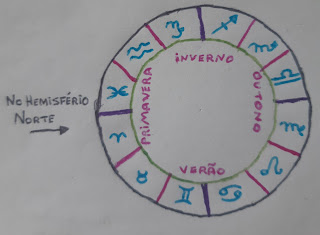 INVERNO
NO HEMISFÉRIO
NORTE
PRIMAVERA
OUTONO
VERÃO